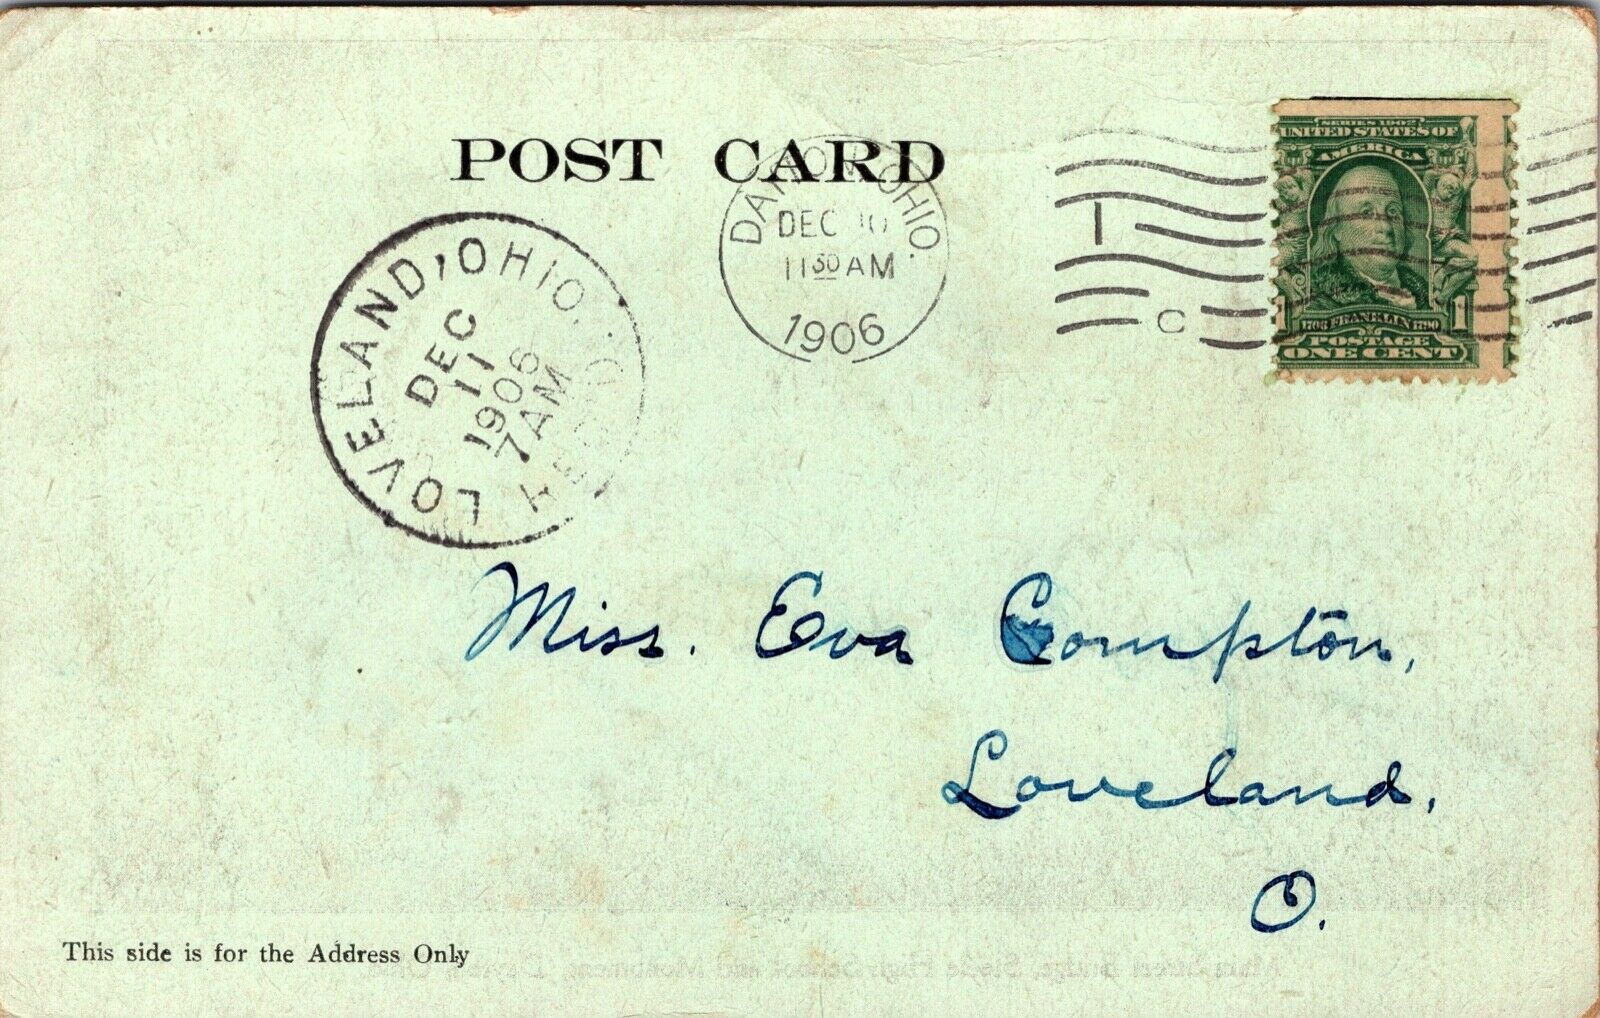 POST CARD
DAYTON, OHIO.
DEC 10
11 30 AM
1906
1
C
SERIES 1902
UNITED STATES OF
AMERICA
1706 FRANKLIN 1790
1 1
POSTAGE
ONE CENT
LOVELAND, OHIO.
DEC
11
1906
7 AM
REC'D.
Miss. Eva Compton,
Loveland,
O.
This side is for the Address Only